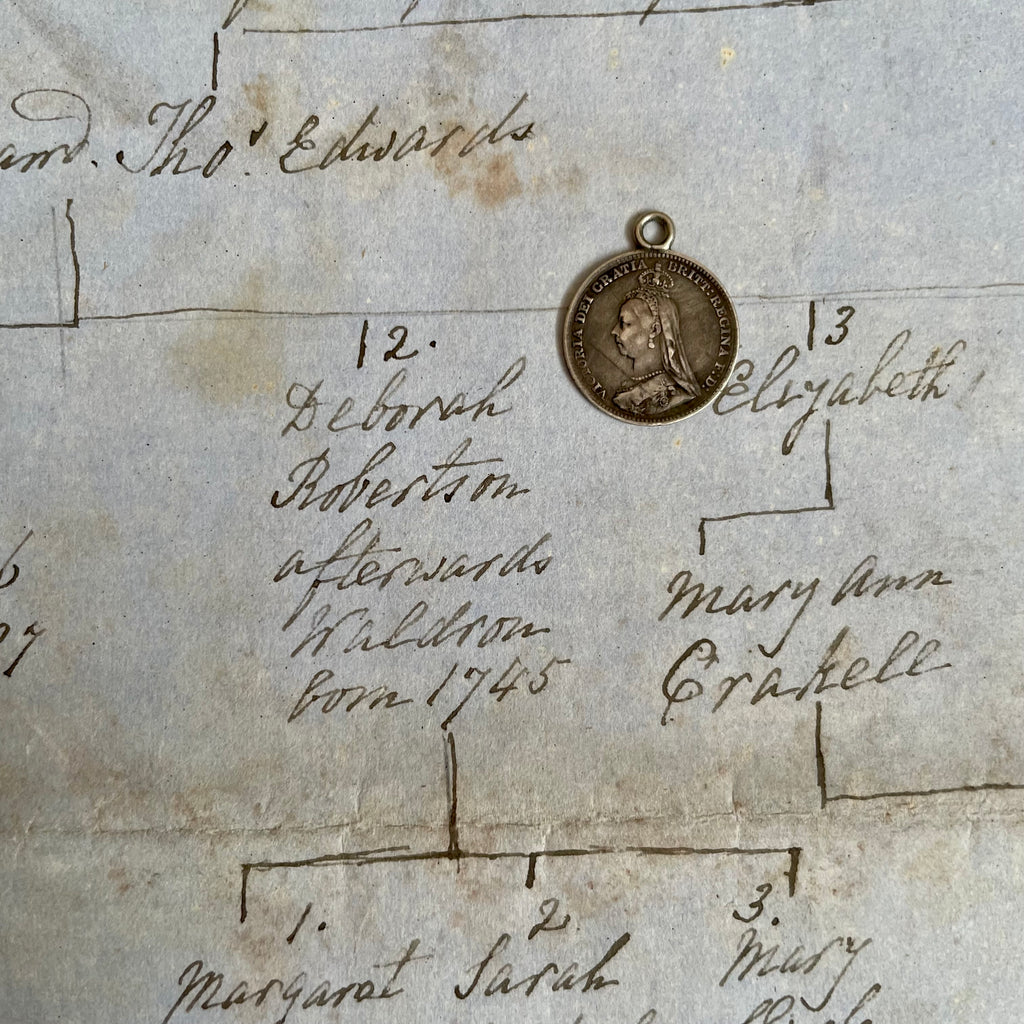 Thos. Edwards
VICTORIA DEI GRATIA BRITT: REGINA F.D.
12.
Deborah
Robertson
afterwards
Waldron
born 1745
13
Elizabeth
Mary Ann
Crakell
1.
Margaret
2
Sarah
3.
Mary